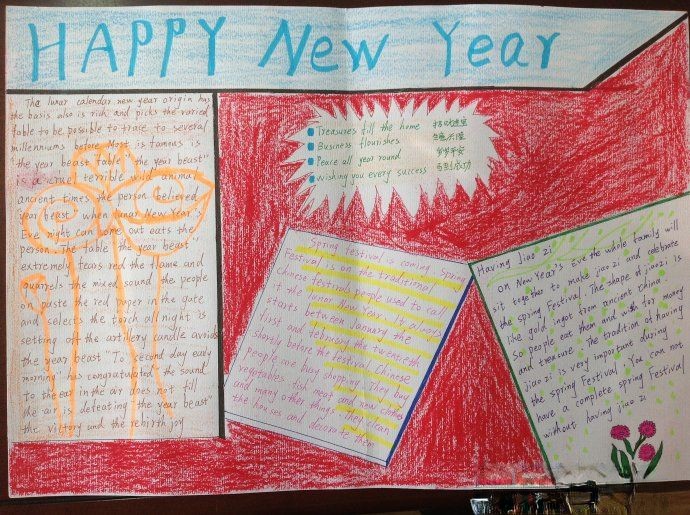 HAPPY New Year
The lunar calendar new year origin has
the basis also is rich and picks the varied
fable to be possible to trace to several
millenniums before. Most is famous is
the year beast fable "the year beast"
is a cruel terrible wild animal
ancient times the person believed
year beast" when lunar New Year's
Eve night can come out eats the
person. The table "the year beast"
extremely fears red the flame and
quarrels the mixed sound the people
on paste the red paper in the gate
and selects the torch all night is
setting off the artillery candle avoids
the year beast "To" second day early
morning" has congratulated the sound
to the ear in the air does not fill
the air is defeating the year beast"
the victory and the rebirth joy
Treasures fill the home 招财进宝
Business flourishes 生意兴隆
Peace all year round 岁岁平安
wishing you every success 马到成功
Spring festival is coming Spring
Festival is on the traditional
Chinese festivals people used to call
it the lunar New Year. It always
starts between January the
first and february the twentieth
shortly before the festival, Chinese
people are busy shopping. They buy
vegetables fish meat and new clothes
and many other things. they clean
the houses and decorate them
Having Jiao zi
on New Year's Eve the whole family will
sit together to make jiao zi and celebrate
the spring Festival. The shape of jiaozi is
like gold ingot from ancient china.
so people eat them and wish for money
and treasure. The tradition of having
Jiao zi is very important during
the spring Festival. You can not
have a complete spring Festival
without having jiao zi